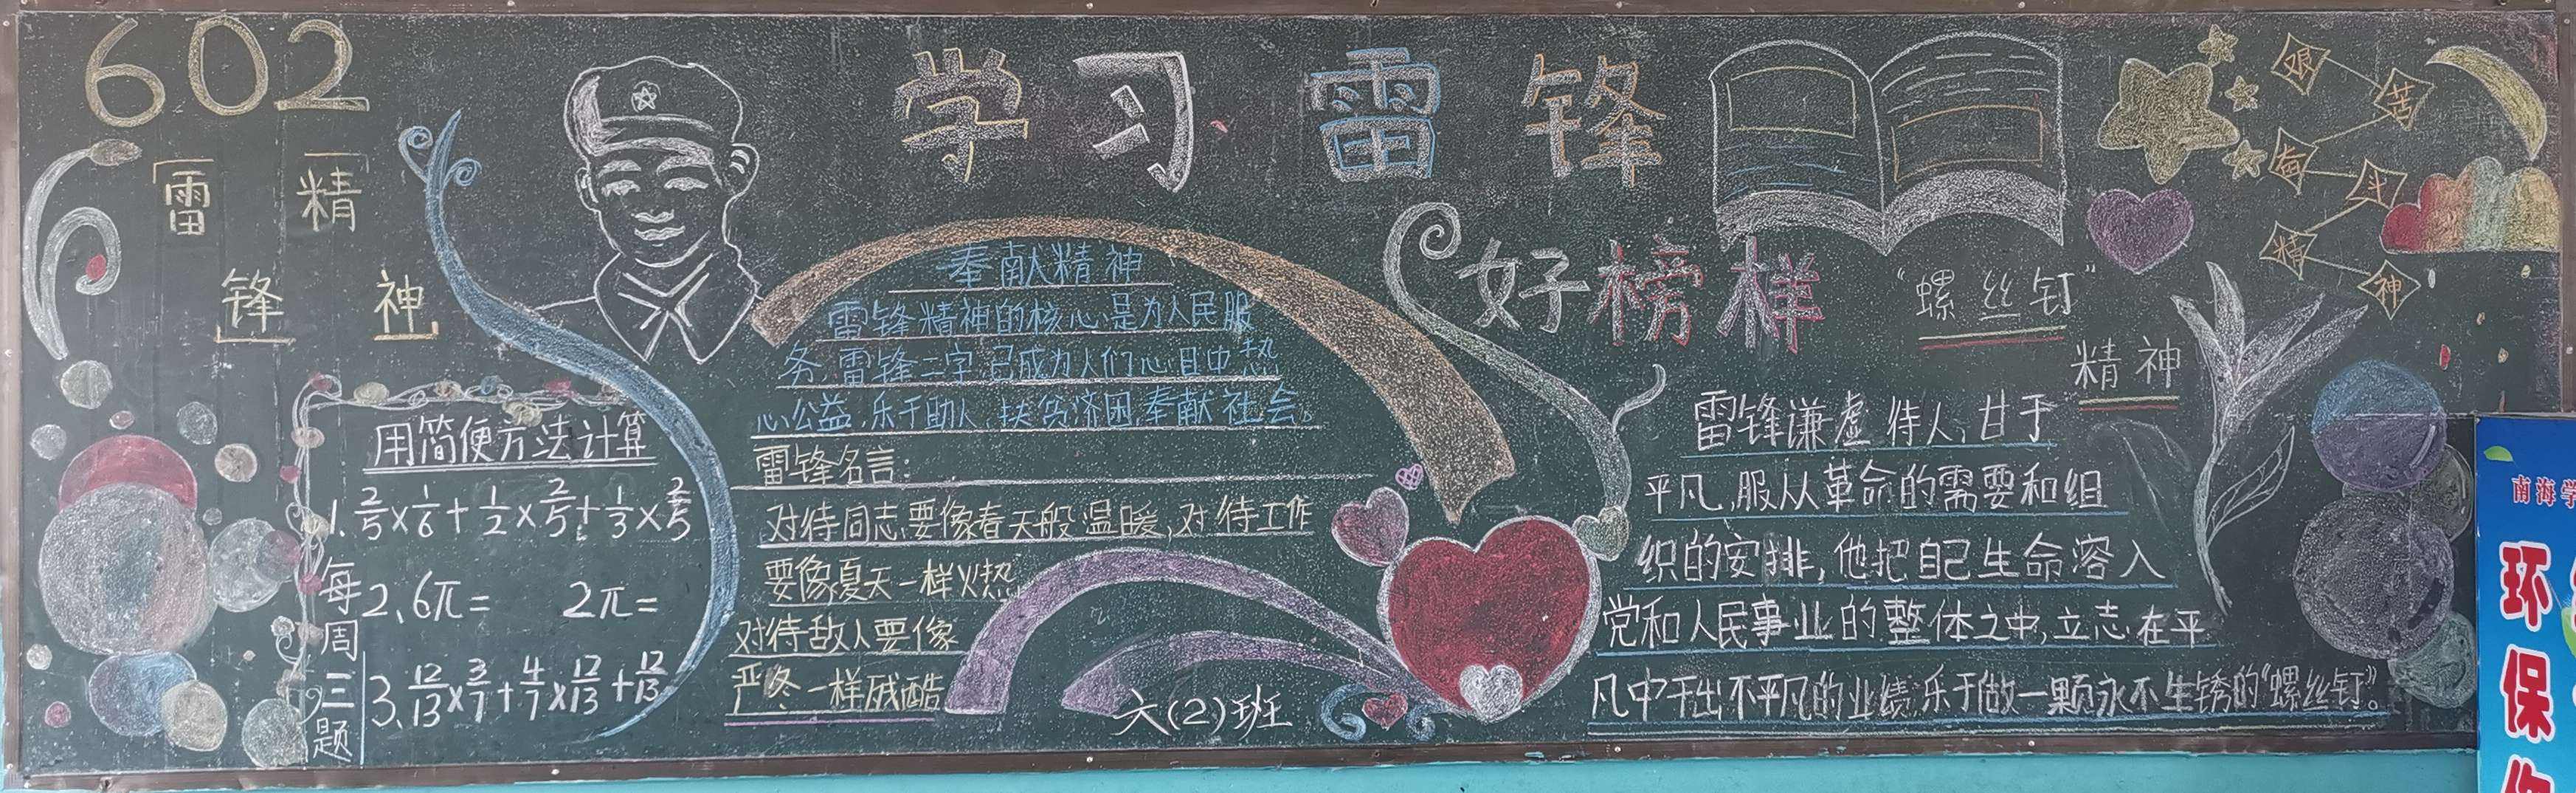 602
学习雷锋
好榜样
「雷锋」
「精神」
用简便方法计算
1. 2/5×1/6+1/2×2/5+1/3×2/5
2、6π=  2π=
3、12/13×3/7+4/7×12/13+12/13
每周三题
奉献精神
雷锋精神的核心是为人民服
务,雷锋二字已成为人们心目中热
心公益,乐于助人,扶贫济困,奉献社会。
雷锋名言:
对待同志要像春天般温暖,对待工作
要像夏天一样火热
对待敌人要像
严冬一样威酷
六(2)班
“螺丝钉”
精神
雷锋谦虚待人,甘于
平凡,服从革命的需要和组
织的安排,他把自己生命溶入
党和人民事业的整体之中,立志在平
凡中干出不平凡的业绩,乐于做一颗永不生锈的“螺丝钉”。
艰苦奋斗精神
南海学
环保